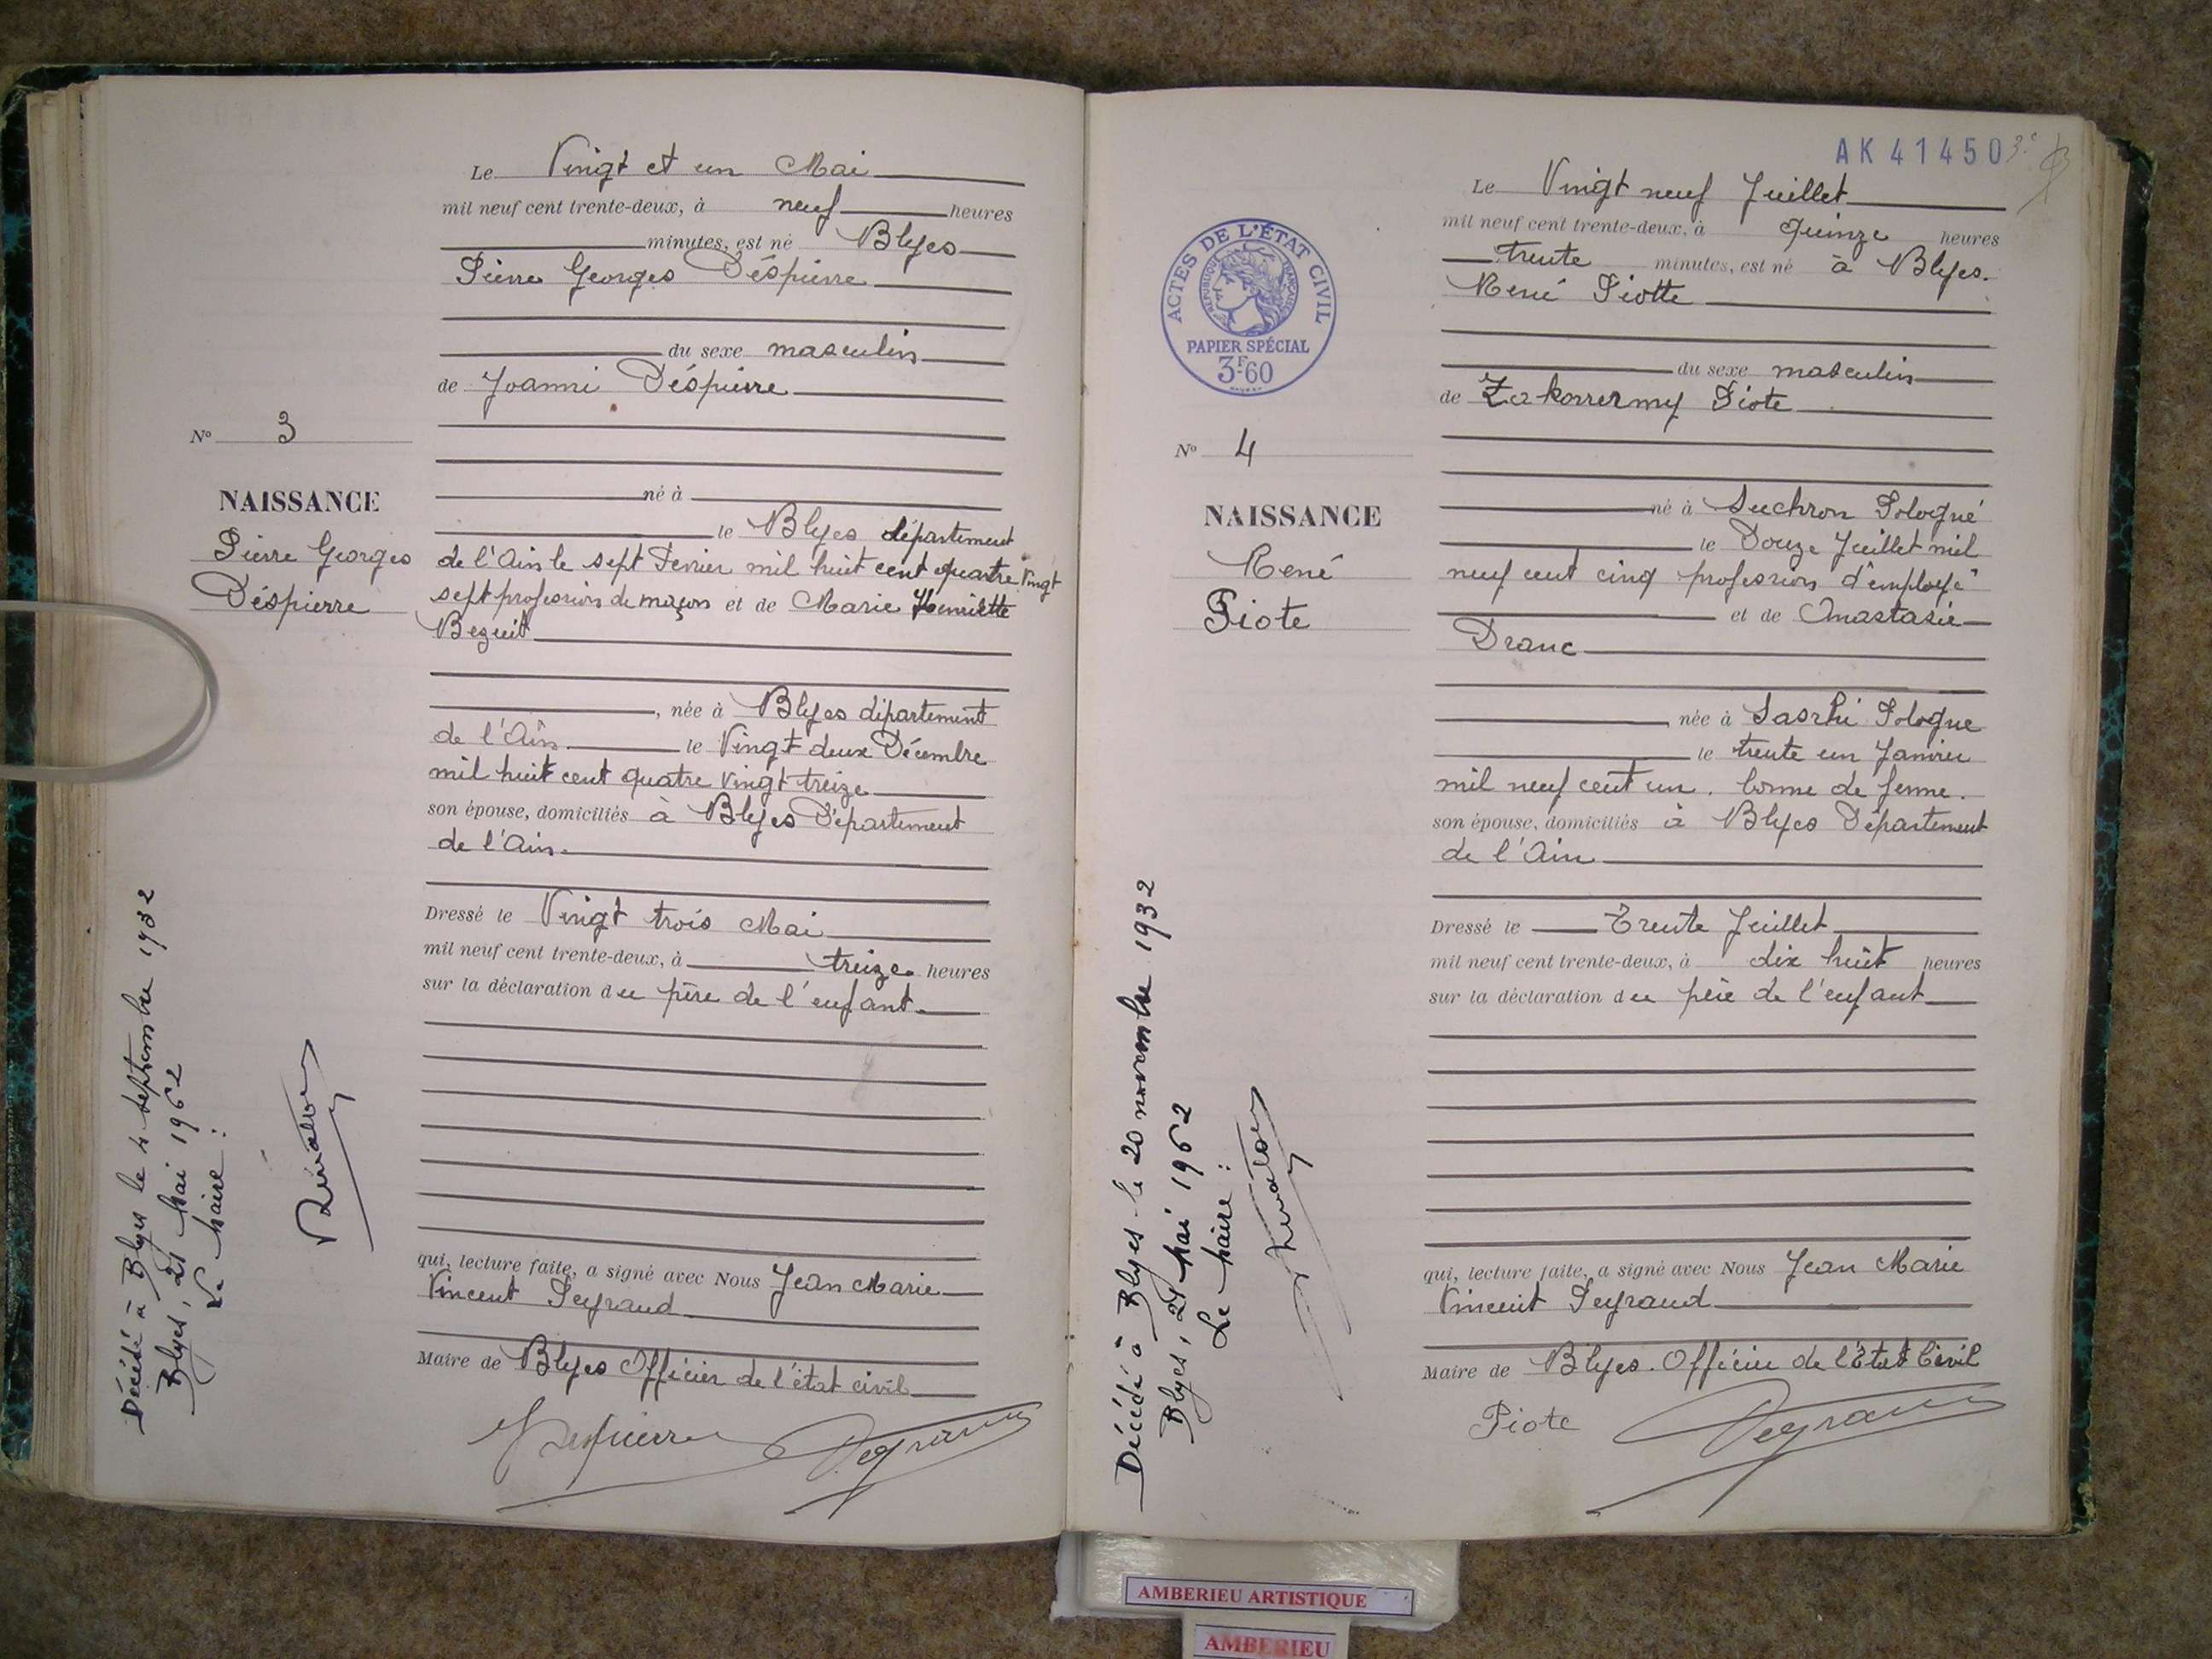 Le Vingt et un Mai
mil neuf cent trente-deux, à neuf heures
minutes, est né Blyes
Pierre Georges Déspierre
du sexe masculin
de Joanni Déspierre
N° 3
né à
NAISSANCE
le Blyes département
Pierre Georges
de l'Ain le sept Fevrier mil huit cent quatre vingt
Déspierre
sept profession de maçon et de Marie Henriette
Beguit
, née à Blyes département
de l'Ain le Vingt deux Décembre
mil huit cent quatre vingt treize
son épouse, domiciliés à Blyes Département
de l'Ain.
Dressé le Vingt trois Mai
mil neuf cent trente-deux, à treize heures
sur la déclaration du père de l'enfant.
qui, lecture faite, a signé avec Nous Jean Marie
Vincent Peyraud
Maire de Blyes Officier de l'état civil
Despierre Peyraud
Décédé à Blyes le 4 septembre 1932
Blyes, 21 Mai 1962
Le Maire :
AK 41450
Le Vingt neuf Juillet
mil neuf cent trente-deux, à quinze heures
trente minutes, est né à Blyes.
René Piotte
ACTES DE L'ÉTAT CIVIL
RÉPUBLIQUE FRANÇAISE
PAPIER SPÉCIAL
3F60
du sexe masculin
de Piote
N° 4
né à Suchron Pologne
NAISSANCE
le Douze Juillet mil
René
neuf cent cinq profession d'employé
Piote
et de Anastasie
Dranc
née à Pologne
le trente un Janvier
mil neuf cent un. bonne de ferme.
son épouse, domiciliés à Blyes Département
de l'Ain
Dressé le Trente Juillet
mil neuf cent trente-deux, à dix huit heures
sur la déclaration du père de l'enfant
qui, lecture faite, a signé avec Nous Jean Marie
Vincent Peyraud
Maire de Blyes. Officier de l'Etat Civil
Piote Peyraud
Décédé à Blyes le 20 novembre 1932
Blyes, 21 Mai 1962
Le Maire :
AMBERIEU ARTISTIQUE
AMBERIEU